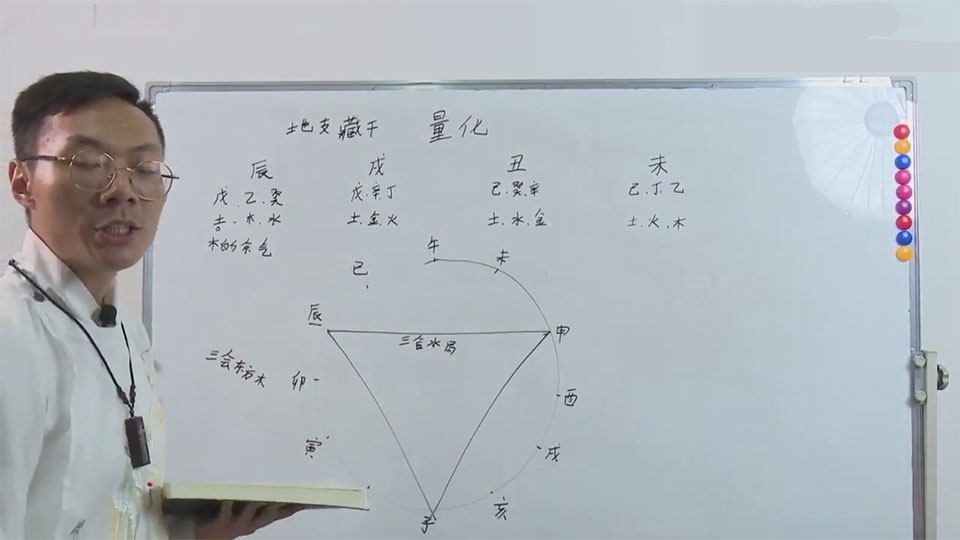 地支藏干 量化
辰 戌 丑 未
戊、乙、癸 戊、辛丁 己、癸、辛 己、丁、乙
土、木、水 土、金、火 土、水、金 土、火、木
木的余气
午
未
巳
辰
申
三合水局
三会东方木
卯
酉
寅
戌
亥
子